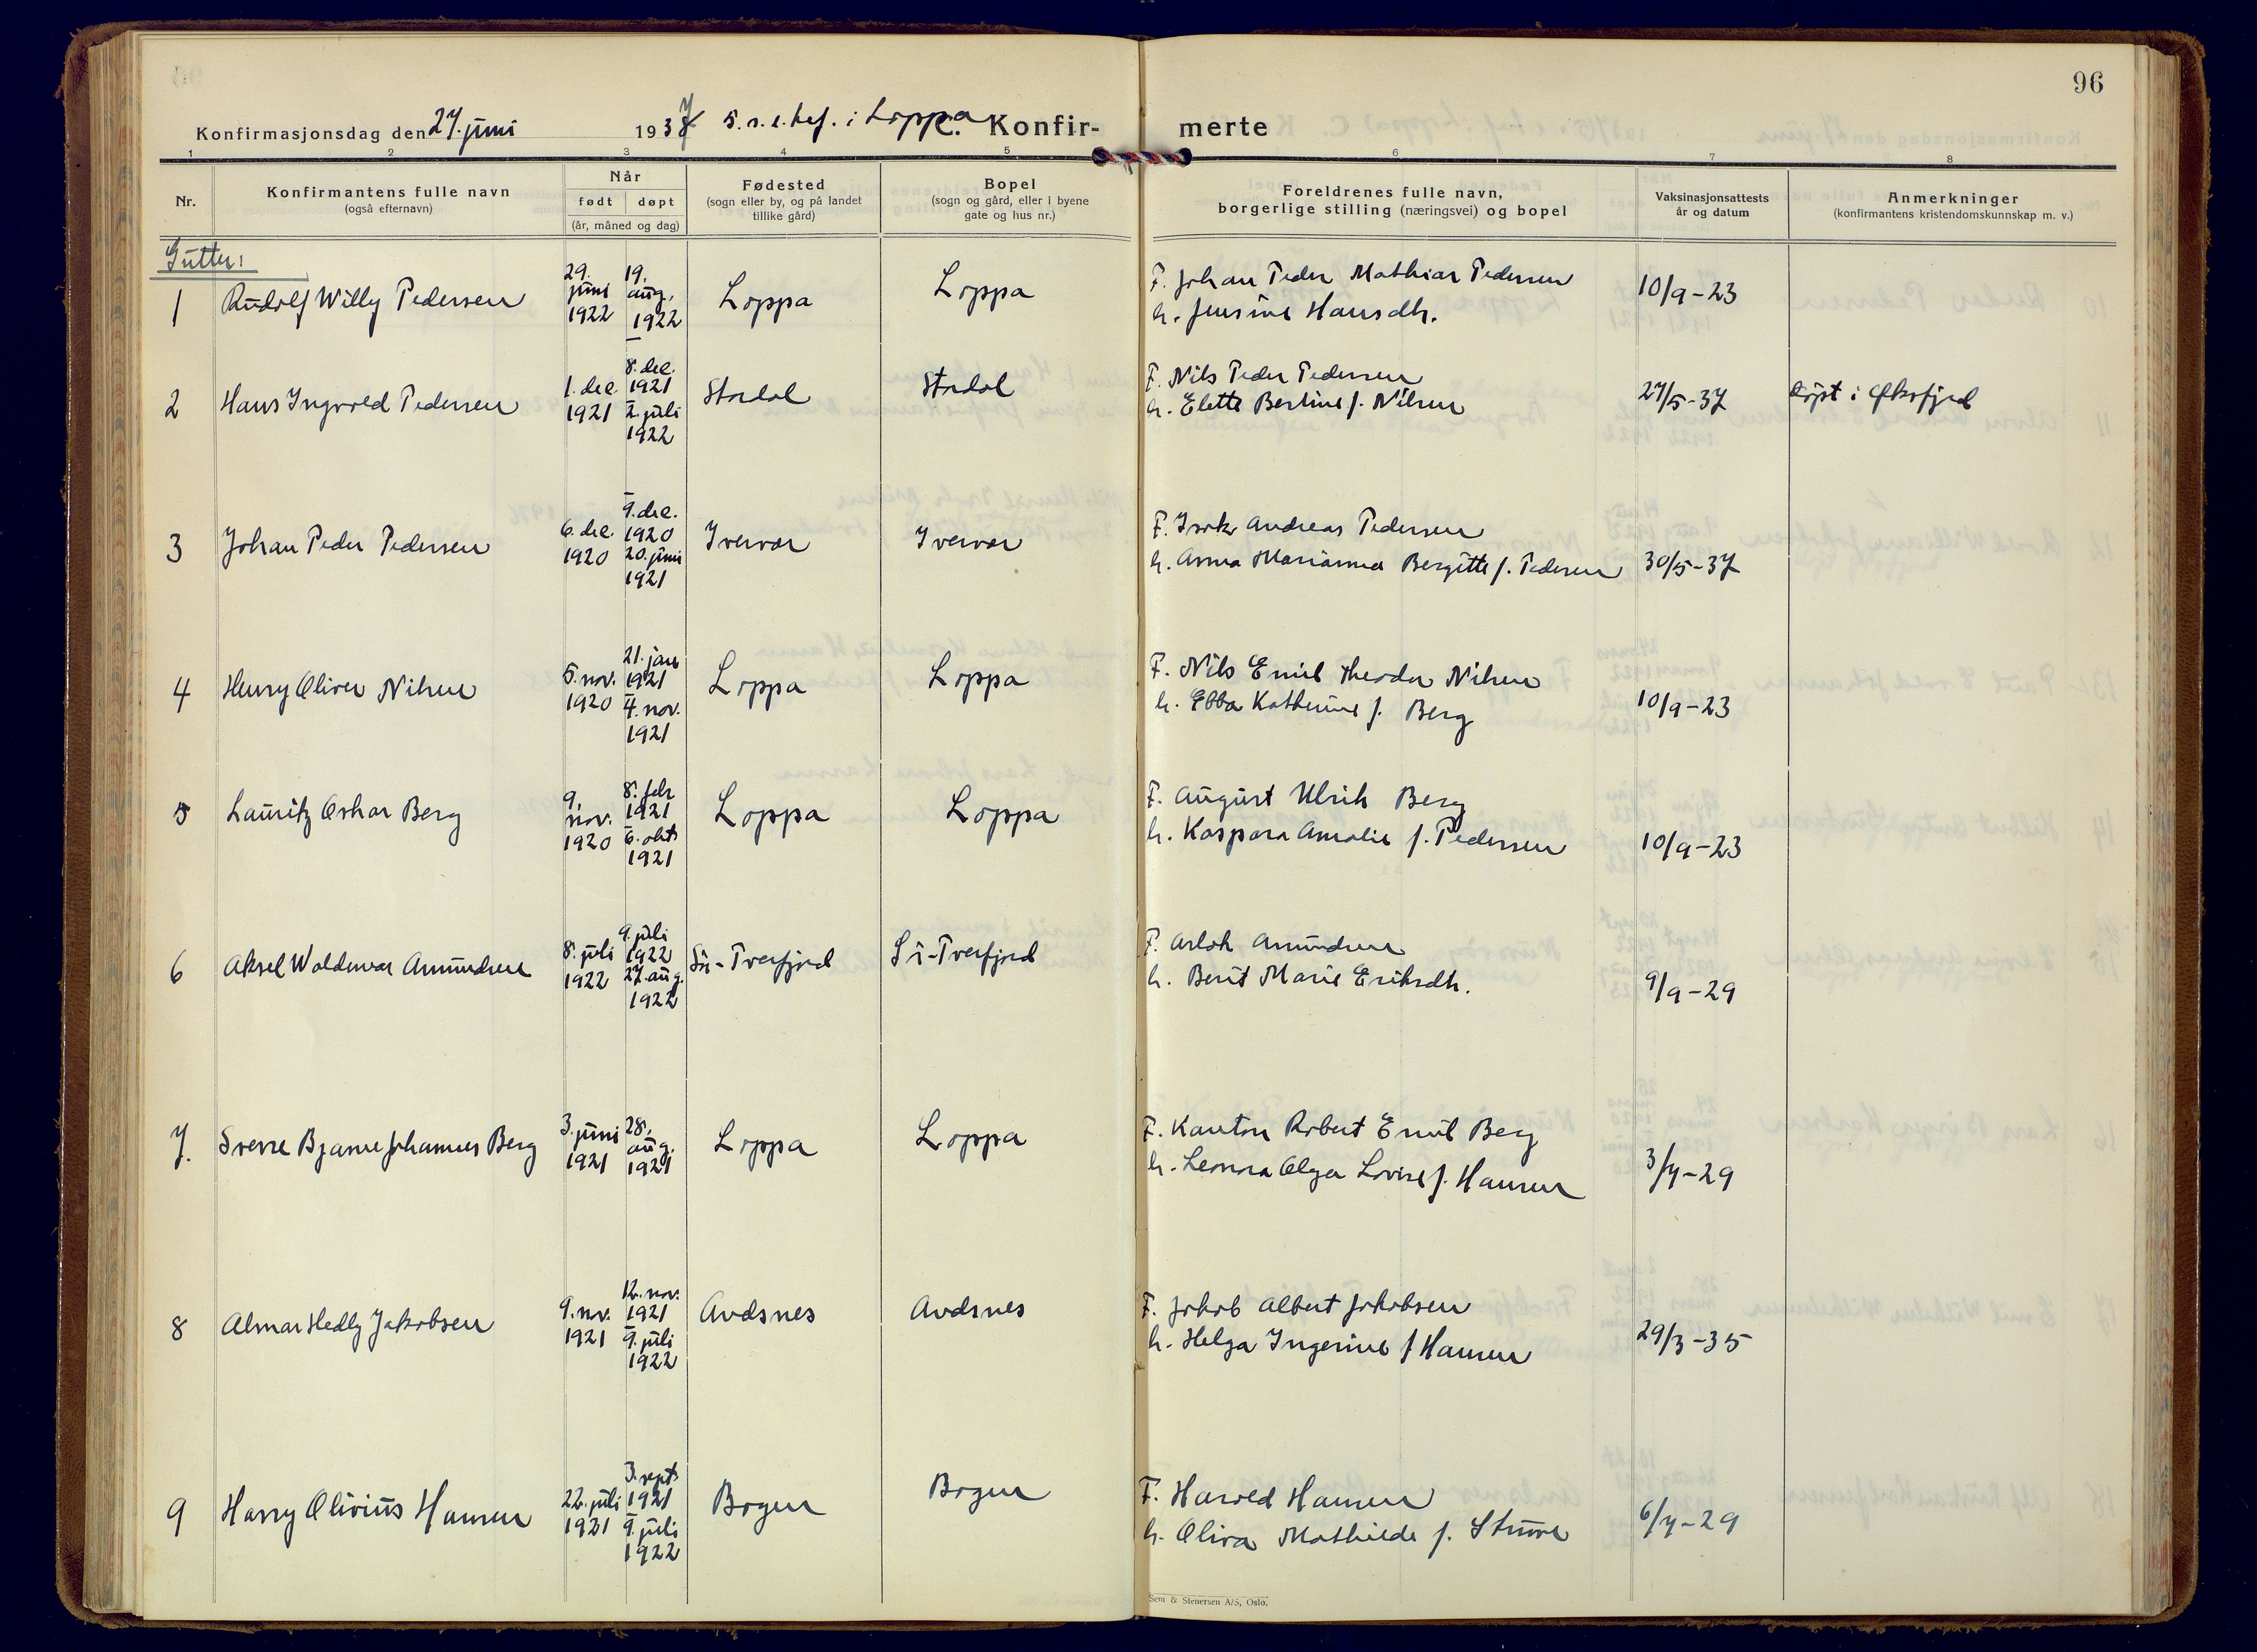 96
Konfirmasjonsdag den 27. juni 1937 5. s. e. tref. i Loppa C. Konfir- merte
1 2 3 4 5 6 7 8
Nr.
Konfirmantens fulle navn
(også efternavn)
Når
født døpt
(år, måned og dag)
Fødested
(sogn eller by, og på landet
tillike gård)
Bopel
(sogn og gård, eller i byene
gate og hus nr.)
Foreldrenes fulle navn,
borgerlige stilling (næringsvei) og bopel
Vaksinasjonsattests
år og datum
Anmerkninger
(konfirmantens kristendomskunnskap m. v.)
Gutter:
1 Rudolf Willy Pedersen
29. juni 1922
19. aug. 1922
Loppa
Loppa
F. Johan Peder Mathias Pedersen
h. Jensine Hansdtr.
10/9-23
2 Hans Ingvald Pedersen
1. des. 1921
8. des. 1921
2. juli 1922
Stordal
Stordal
F. Nils Peder Pedersen
h. Elette Bertine f. Nilsen
27/5-37
Døpt i Øksfjord
3 Johan Peder Pedersen
6. des. 1920
9. des. 1920
20. juni 1921
Ivervær
Ivervær
F. Isak Andreas Pedersen
h. Anna Marianna Bergitte f. Pedersen
30/5-37
4 Henry Oliver Nilsen
5. nov. 1920
21. jan 1921
4. nov. 1921
Loppa
Loppa
F. Nils Emil Theodor Nilsen
h. Ebba Kathrine f. Berg
10/9-23
5 Lauritz Oskar Berg
9. nov. 1920
8. febr 1921
6. okt 1921
Loppa
Loppa
F. August Ulrik Berg
h. Kaspara Amalie f. Pedersen
10/9-23
6 Aksel Waldemar Amundsen
8. juli 1922
9. juli 1922
27. aug. 1922
Sør-Tverfjord
Sør-Tverfjord
F. Aslak Amundsen
h. Berit Marie Eriksdtr.
9/9-29
7. Sverre Bjarne Johannes Berg
3. juni 1921
28. aug. 1921
Loppa
Loppa
F. Kanton Robert Emil Berg
h. Leonora Olga Lovise f. Hansen
3/7-29
8 Almar Hedly Jakobsen
9. nov. 1921
12. nov. 1921
9. juli 1922
Avdsnes
Avdsnes
F. Jakob Albert Jakobsen
h. Helga Ingerine f Hansen
29/3-35
9 Harry Olivius Hansen
22. juli 1921
3. sept 1921
9. juli 1922
Bogen
Bogen
F. Harald Hansen
h. Oliva Mathilde f. Struve
6/7-29
Sem & Stenersen A/S, Oslo.